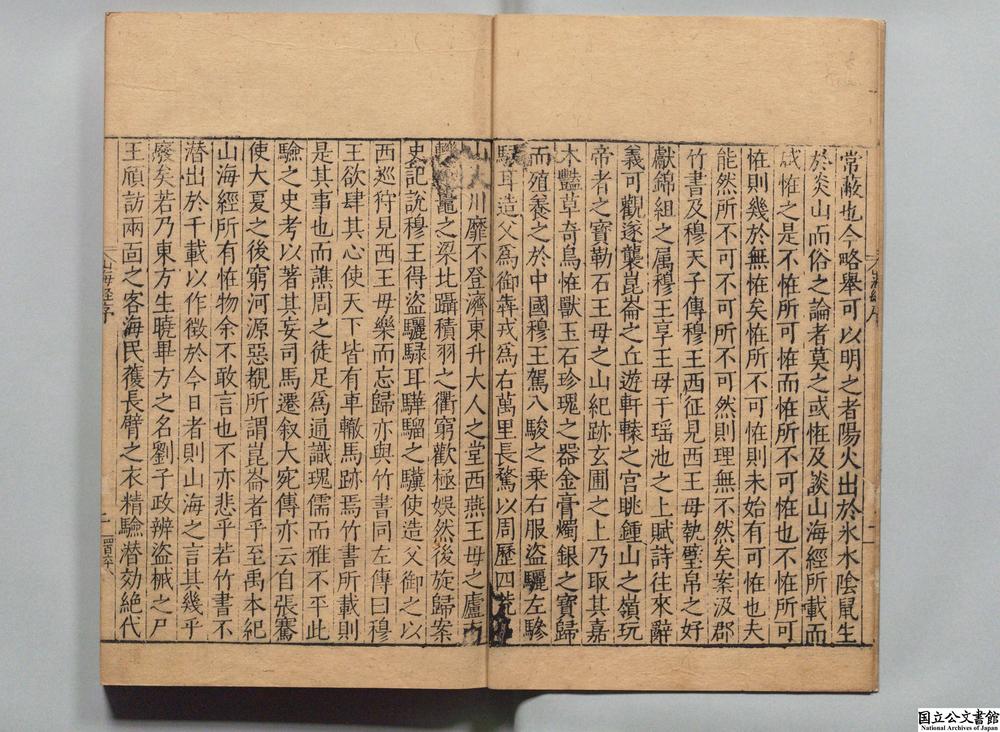 常敝也今略舉可以明之者陽火出於氷水陰鼠生
於炎山而俗之論者莫之或恠及談山海經所載而
咸恠之是不恠所可恠而恠所不可恠也不恠所可
恠則幾於無恠矣恠所不可恠則未始有可恠也夫
能然所不可不可所不可然則理無不然矣案汲郡
竹書及穆天子傳穆王西征見西王母執璧帛之好
獻錦組之属穆王享王母于瑶池之上賦詩往來辭
義可觀遂襲崑崙之丘遊軒轅之宮眺鍾山之嶺玩
帝者之寶勒石王母之山紀跡玄圃之上乃取其嘉
木豔草奇鳥恠獸玉石珍瑰之器金膏燭銀之寶歸
而殖養之於中國穆王駕八駿之乘右服盗驪左驂
騄耳造父爲御犇戎爲右萬里長騖以周歷四荒
川靡不登濟東升大人之堂西燕王母之廬
鼉之梁北躡積羽之衢窮歡極娛然後旋歸案
史記說穆王得盗驪騄耳驊騮之驥使造父御之以
西巡狩見西王母樂而忘歸亦與竹書同左傳曰穆
王欲肆其心使天下皆有車轍馬跡焉竹書所載則
是其事也而譙周之徒足爲通識瑰儒而雅不平此
驗之史考以著其妄司馬遷叙大宛傳亦云自張騫
使大夏之後窮河源惡覩所謂崑崙者乎至禹本紀
山海經所有恠物余不敢言也不亦悲乎若竹書不
潜出於千載以作徴於今日者則山海之言其幾乎
廢矣若乃東方生曉畢方之名劉子政辨盗械之尸
王頎訪兩面之客海民獲長臂之衣精驗潜効絶代
山海經序
二
国立公文書館
National Archives of Japan